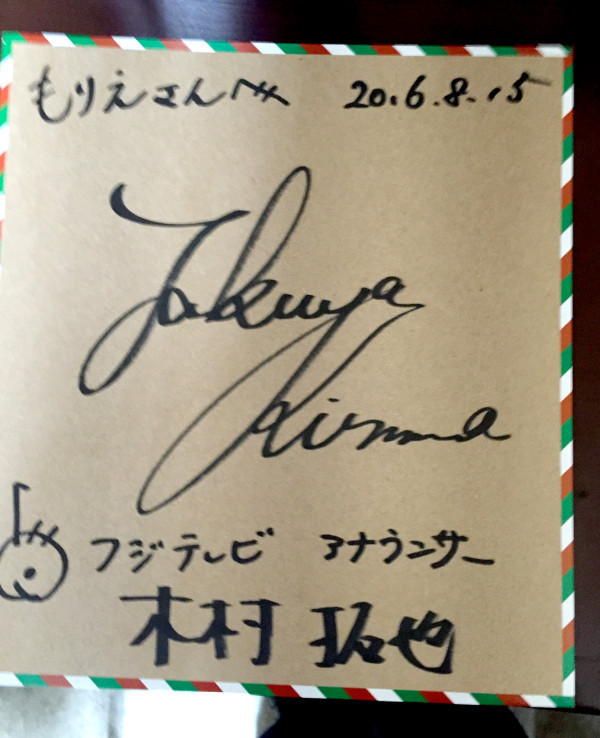 もりえさんへ 2016.8.15
Takuya
Kimura
フジテレビ アナウンサー
木村 拓也